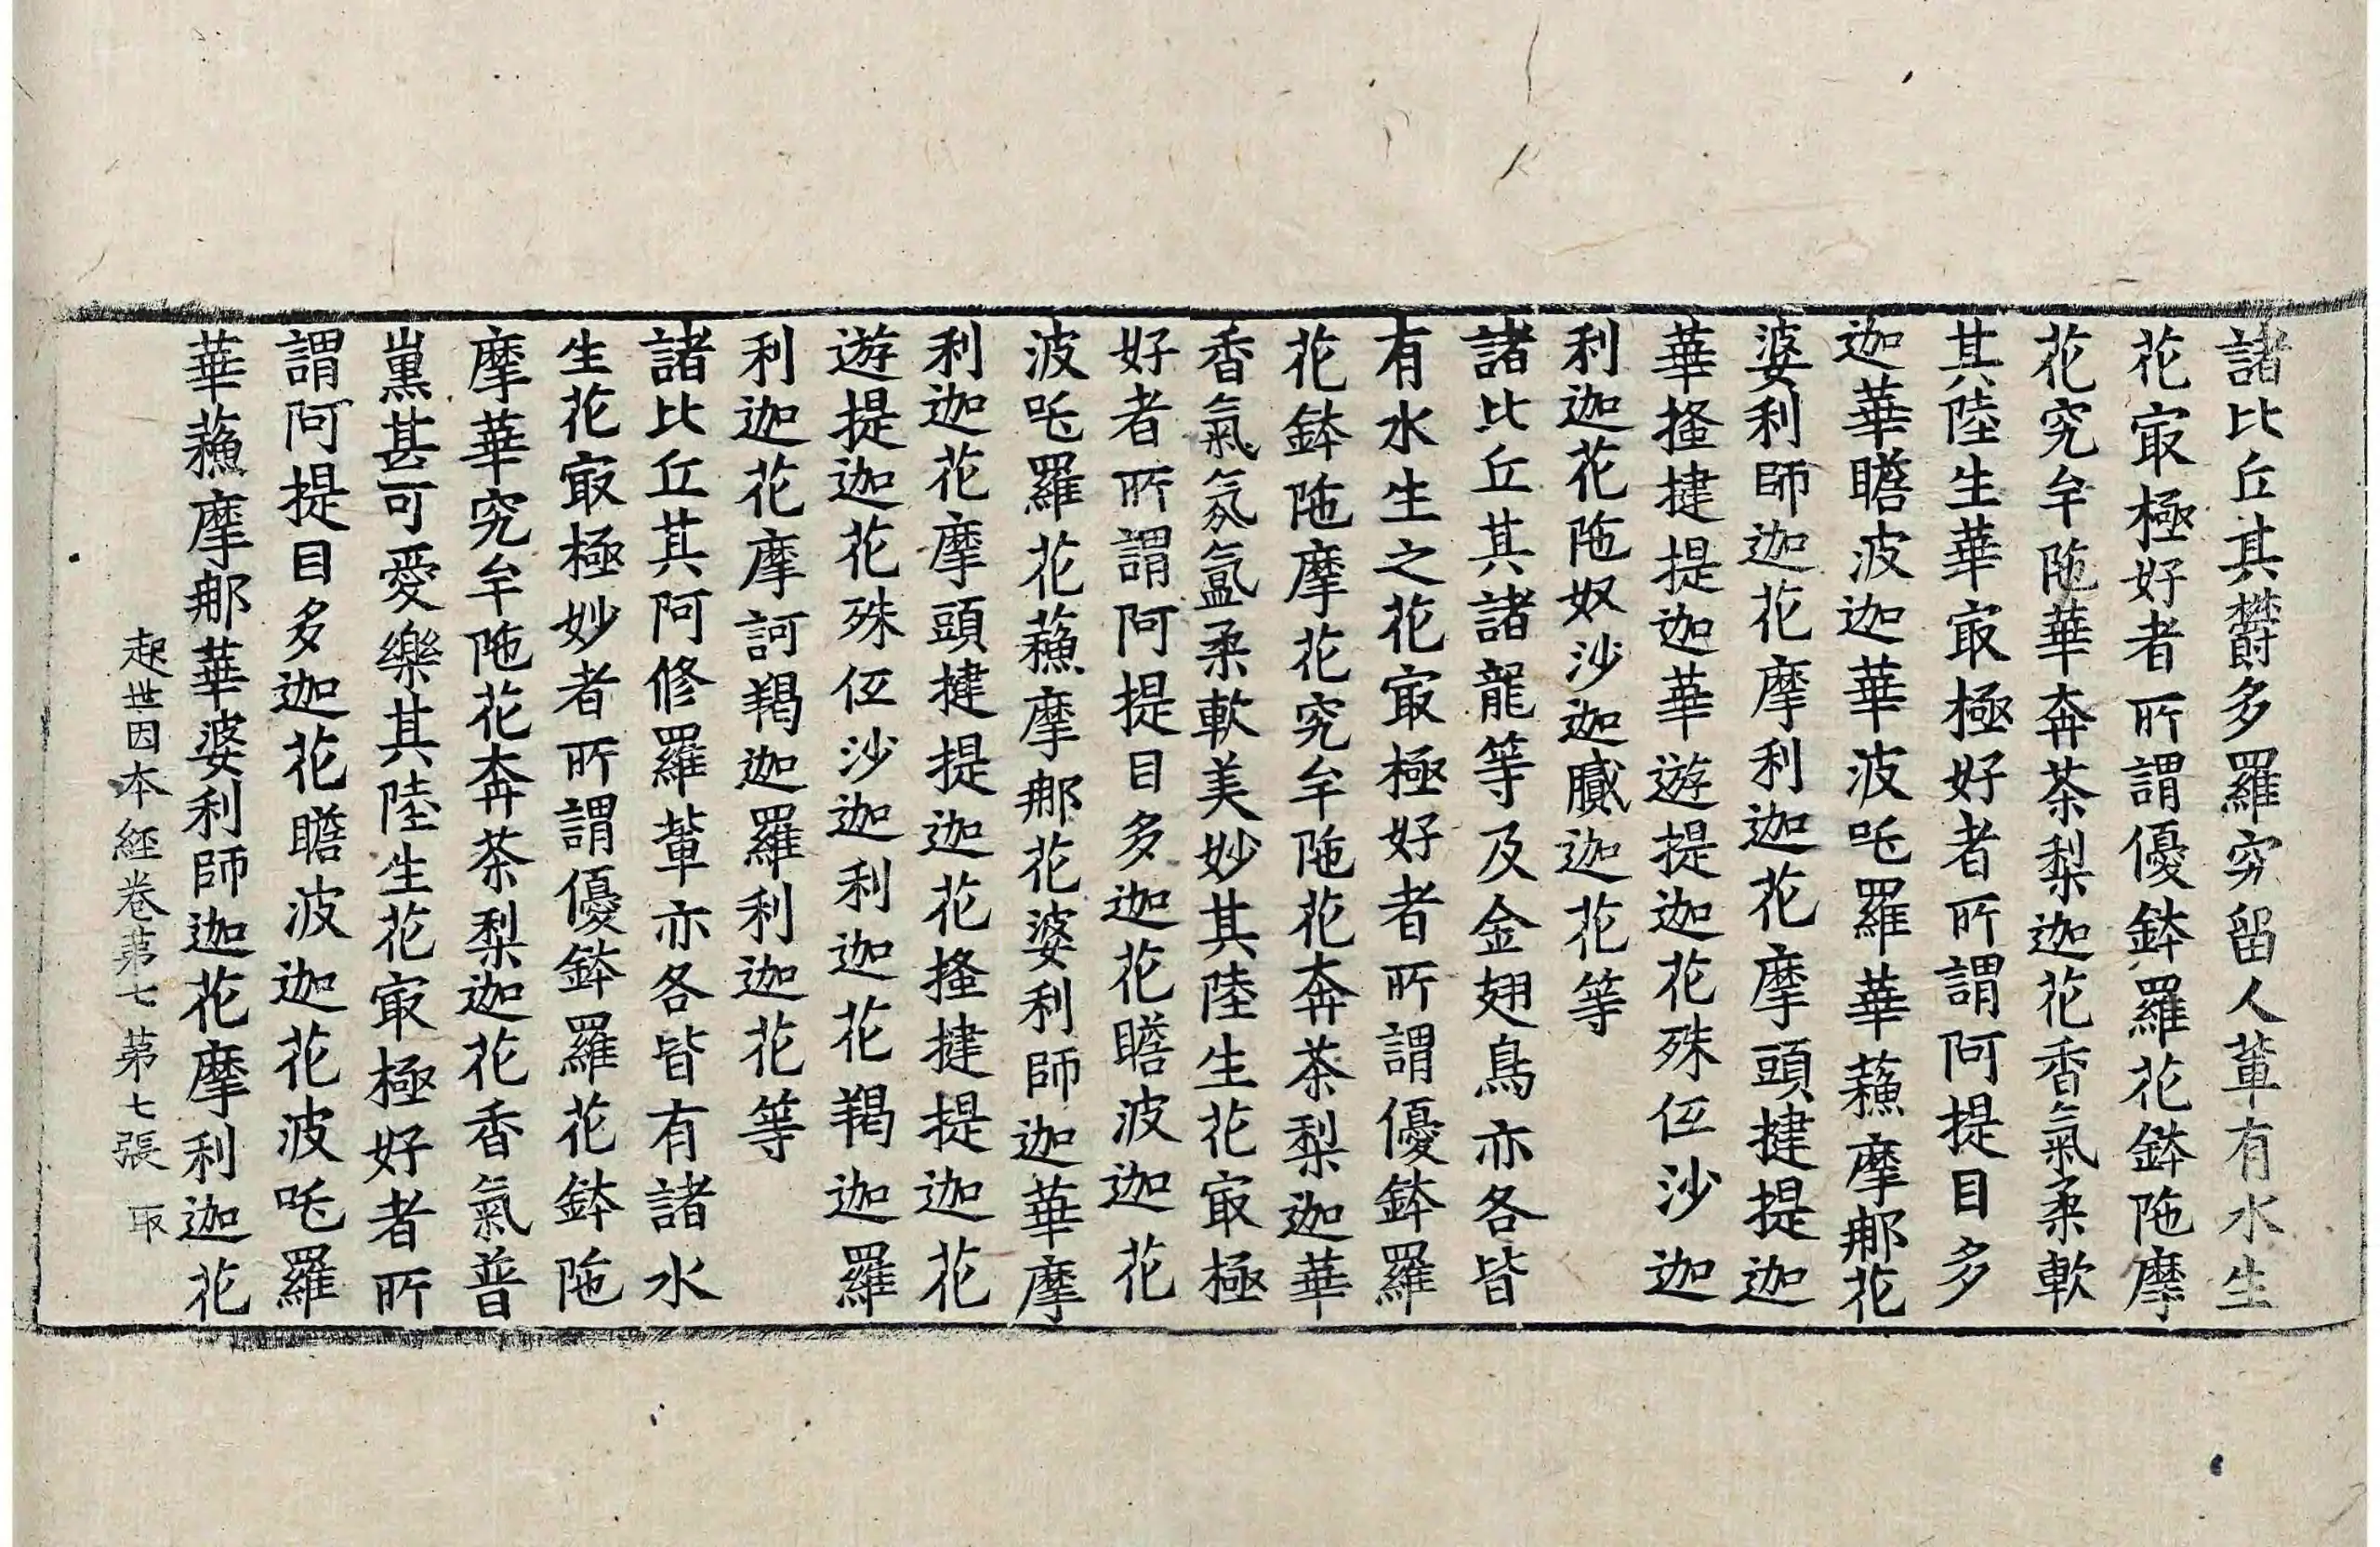 諸比丘其欝多羅究留人輩有水生
花㝡極好者所謂優鉢羅花鉢陁摩
花究牟陁華奔茶梨迦花香氣柔軟
其陸生華㝡極好者所謂阿提目多
迦華瞻波迦華波吒羅華蘓摩那花
婆利師迦花摩利迦花摩頭揵提迦
華搔揵提迦華遊提迦花殊伍沙迦
利迦花陁奴沙迦膩迦花等
諸比丘其諸龍等及金翅鳥亦各皆
有水生之花㝡極好者所謂優鉢羅
花鉢陁摩花究牟陁花奔茶梨迦華
香氣氛氳柔軟美妙其陸生花㝡極
好者所謂阿提目多迦花瞻波迦花
波吒羅花蘓摩那花婆利師迦華摩
利迦花摩頭揵提迦花搔揵提迦花
遊提迦花殊伍沙迦利迦花羯迦羅
利迦花摩訶羯迦羅利迦花等
諸比丘其阿修羅輩亦各皆有諸水
生花㝡極妙者所謂優鉢羅花鉢陁
摩華究牟陁花奔茶梨迦花香氣普
熏甚可愛樂其陸生花㝡極好者所
謂阿提目多迦花瞻波迦花波吒羅
華蘓摩那華婆利師迦花摩利迦花
起世因本經卷第七 第七張 取